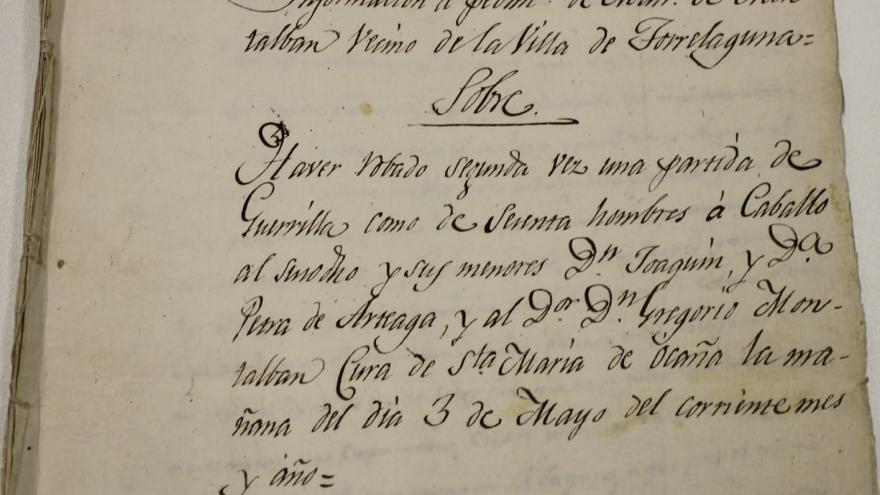 Información á pedim.to de
talban Vecino de la Villa de Torrelaguna=
Sobre.
Haver robado segunda vez una partida de
Guerrilla como de sesenta hombres á Caballo
al susodho y sus menores Dn Joaquin, y Da.
Petra de Arteaga, y al Dor Dn Gregorio Mon-
talban Cura de Sta María de Ocaña la ma-
ñana del día 3 de Mayo del corriente mes
y año=